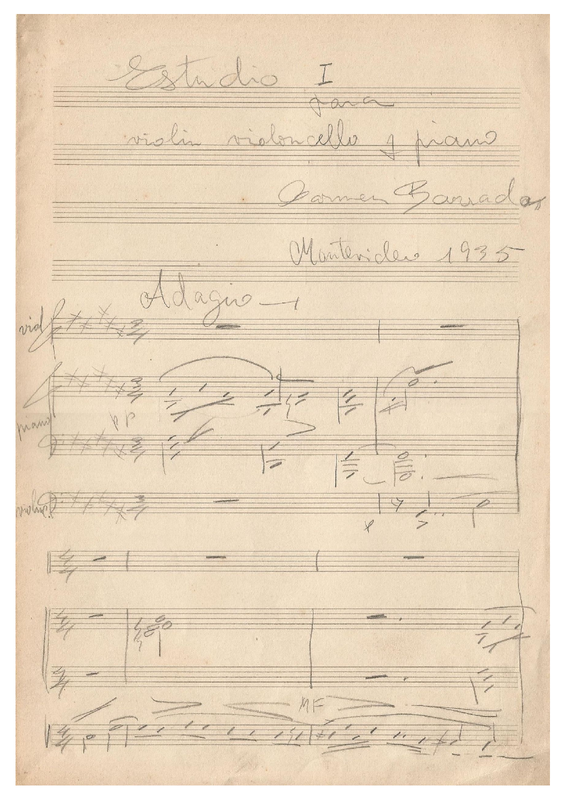 Estudio I
para
violin violoncello y piano
Carmen Barradas
Montevideo 1935
Adagio
viol
piano
PP
MF